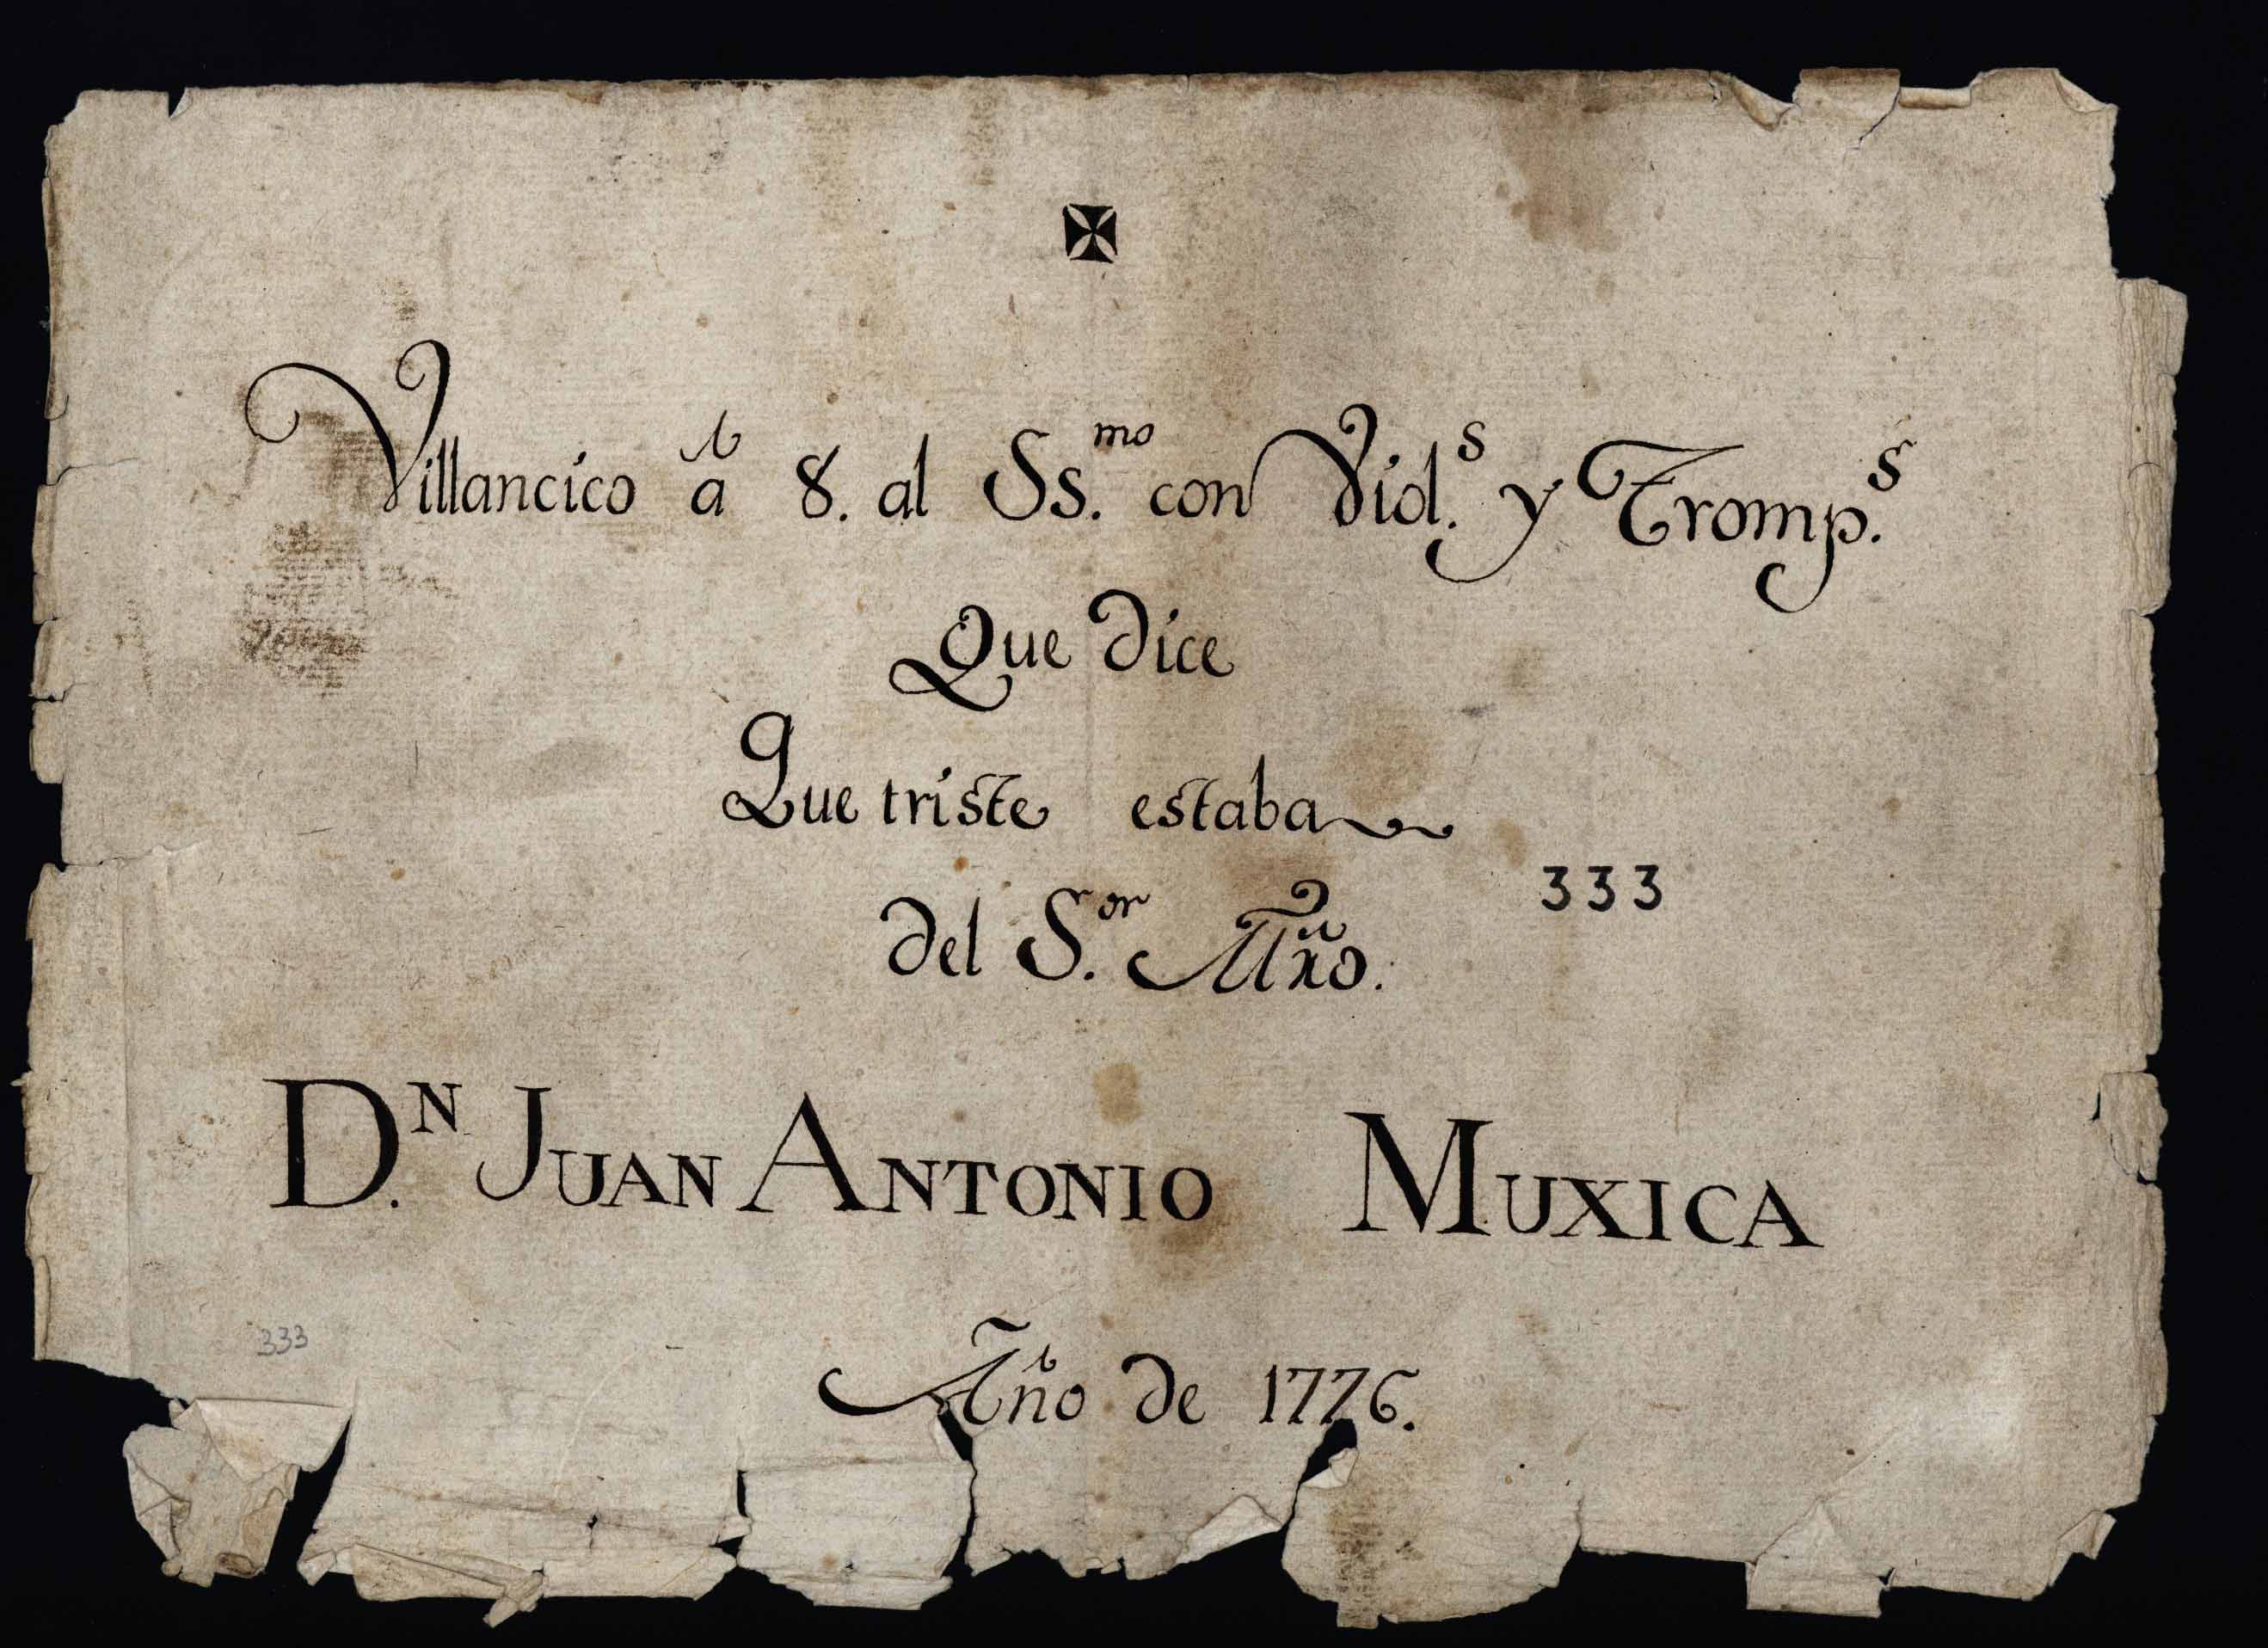 ✠
Villancico à 8. al Ss.mo con Viol.s y Tromp.s
Que dice
Que triste estaba
333
del S.or Mr̃o.
D.N JUAN ANTONIO MUXICA
333
Año de 1776.